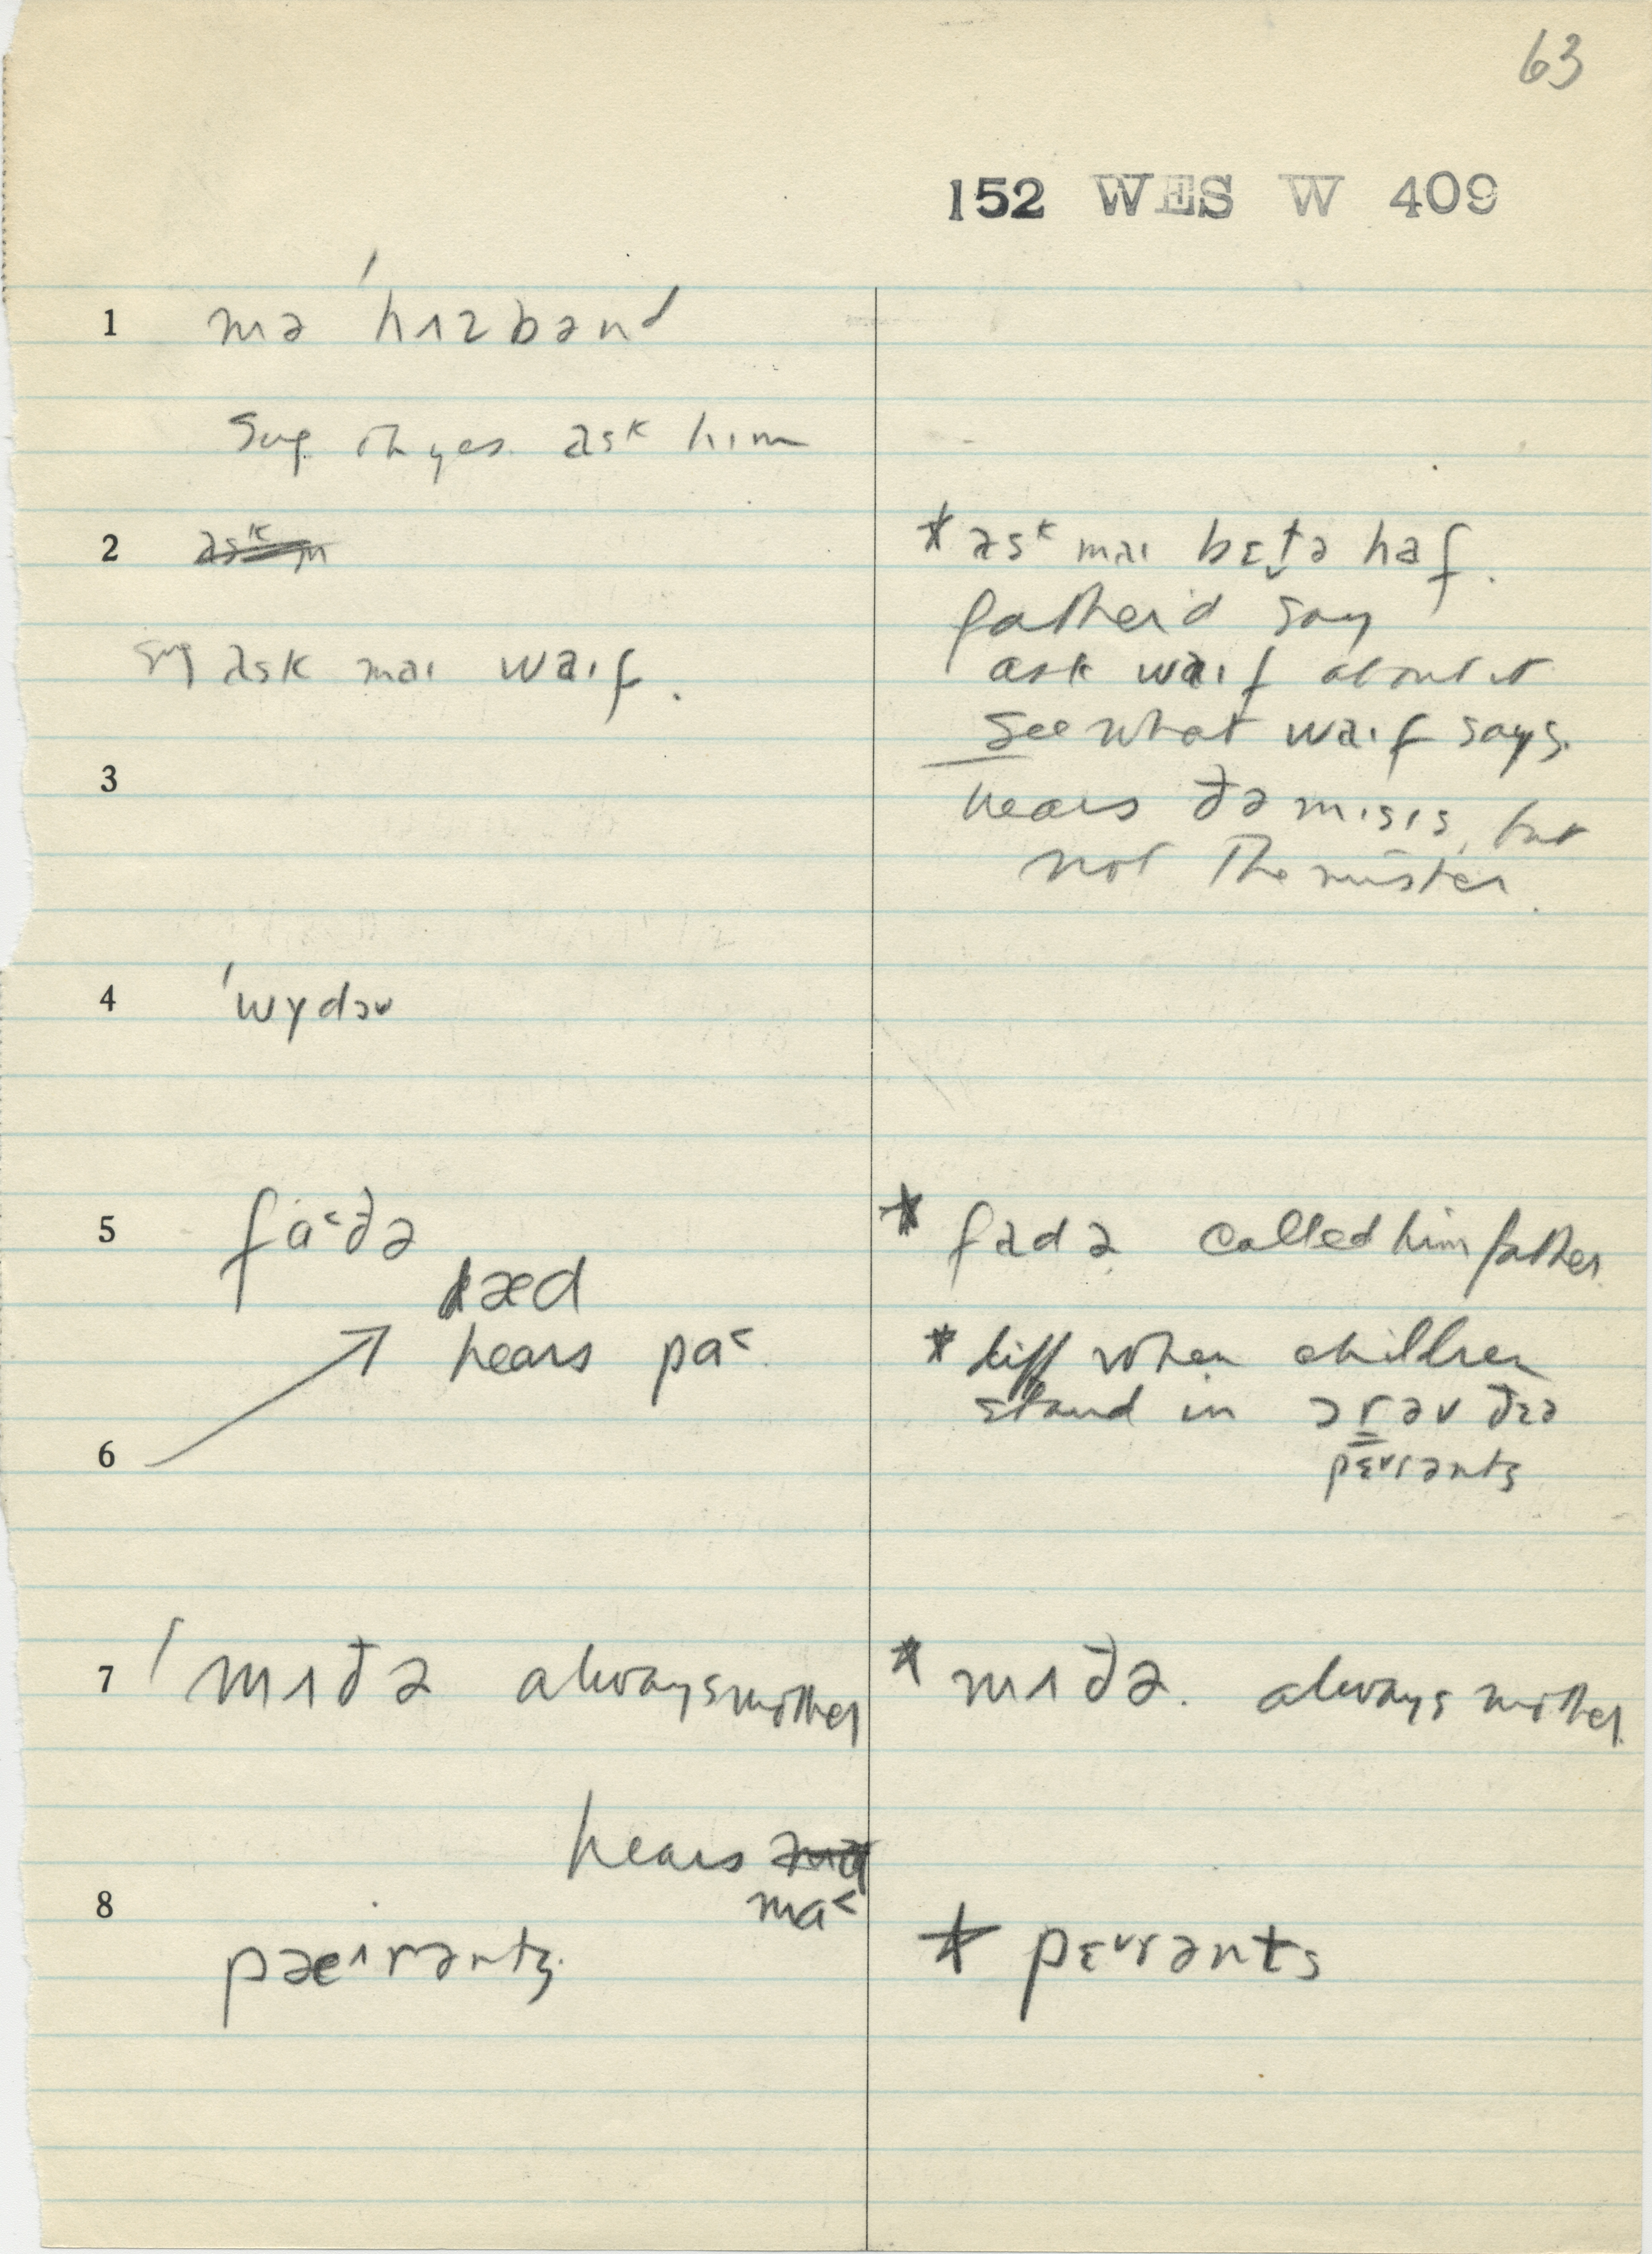 63
152 WES W 409
1 mə ˈhʌzbənd
Sug. oh yes. ask him
2
sug ask maɪ waɪf.
* ask maɪ bɛt̬ə haf.
father'd say
ask waɪf about it
See what waɪf says.
3
hears ðə mɪsɪs, but
not the mister.
4 ˈwɪdəʊ
5 fa˂ðə
dæd
hears pa˂.
* fadə called him father.
* diff when children
stand in ɔr əv ðɛə
pɛ˅rənts
6
7 ˈmʌðə always mother
* mʌðə. always mother.
hears
ma˂
8
pæ˄rənts.
* pɛ˅rənts